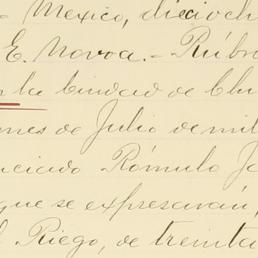 - Mexico, diecioch
E. Novoa.- Rúbr
la Ciudad de Ch
mes de Julio de mil
nciado Rómulo J
que se expresarán,
l Riego, de treinta